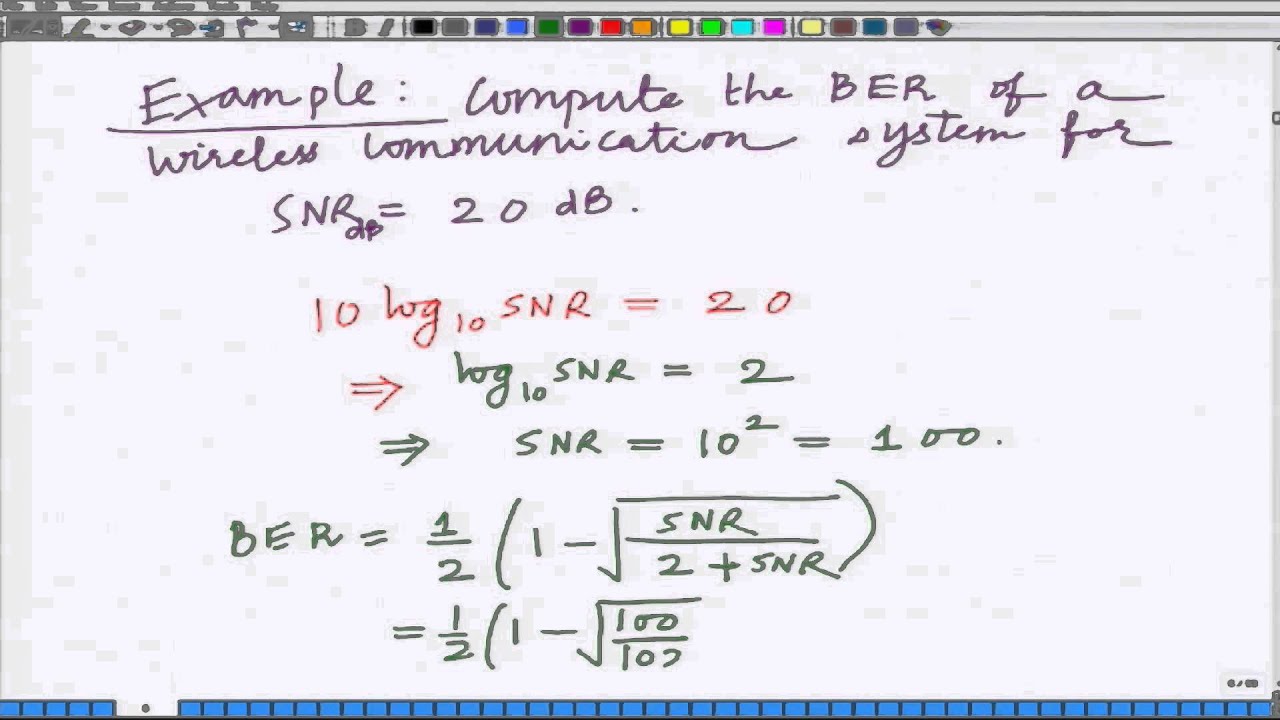 Example: Compute the BER of a
wireless communication system for
SNR_dB = 20 dB.
10 log₁₀ SNR = 20
⇒ log₁₀ SNR = 2
⇒ SNR = 10² = 100.
BER = 1/2 (1 - √(SNR/(2 + SNR)))
= 1/2 (1 - √(100/102